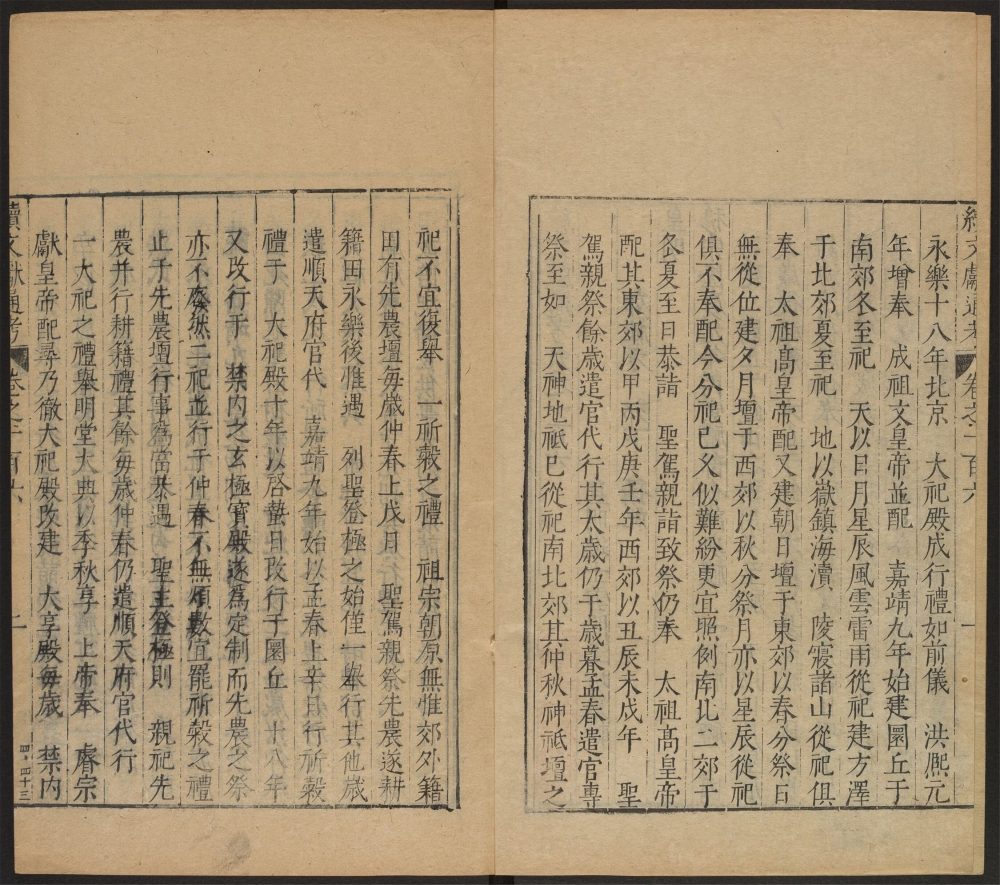 續文獻通考 卷之一百六 一
永樂十八年北京 大祀殿成行禮如前儀 洪熈元
年增奉 成祖文皇帝並配 嘉靖九年始建圜丘于
南郊冬至祀 天以日月星辰風雲雷雨從祀建方澤
于北郊夏至祀 地以嶽鎮海瀆 陵寢諸山從祀俱
奉 太祖髙皇帝配又建朝日壇于東郊以春分祭日
無從位建夕月壇于西郊以秋分祭月亦以星辰從祀
俱不奉配今分祀已乆似難紛更宜照例南北二郊于
冬夏至日恭詣 聖駕親詣致祭仍奉 太祖髙皇帝
配其東郊以甲丙戊庚壬年西郊以丑辰未戌年 聖
駕親祭餘歲遣官代行其太歲仍于歲暮孟春遣官專
祭至如 天神地祗已從祀南北郊其仲秋神祗壇之
祀不宜復舉 一祈穀之禮 祖宗朝原無惟郊外籍
田有先農壇每歲仲春上戊日 聖駕親祭先農遂耕
籍田永樂後惟遇 列聖登極之始僅一舉行其他歲
遣順天府官代 嘉靖九年始以孟春上辛日行祈穀
禮于 大祀殿十年以啓蟄日改行于圜丘 十八年
又改行于 禁内之玄極寳殿遂爲定制而先農之祭
亦不廢然二祀並行于仲春不無煩數宜罷祈穀之禮
止于先農壇行事爲當恭遇 聖主登極則 親祀先
農并行耕籍禮其餘每歲仲春仍遣順天府官代行
一大祀之禮舉明堂大典以季秋享 上帝奉 睿宗
獻皇帝配尋乃徹大祀殿改建 大享殿每歲 禁内
續文獻通考 卷之一百六 二
四·四十三